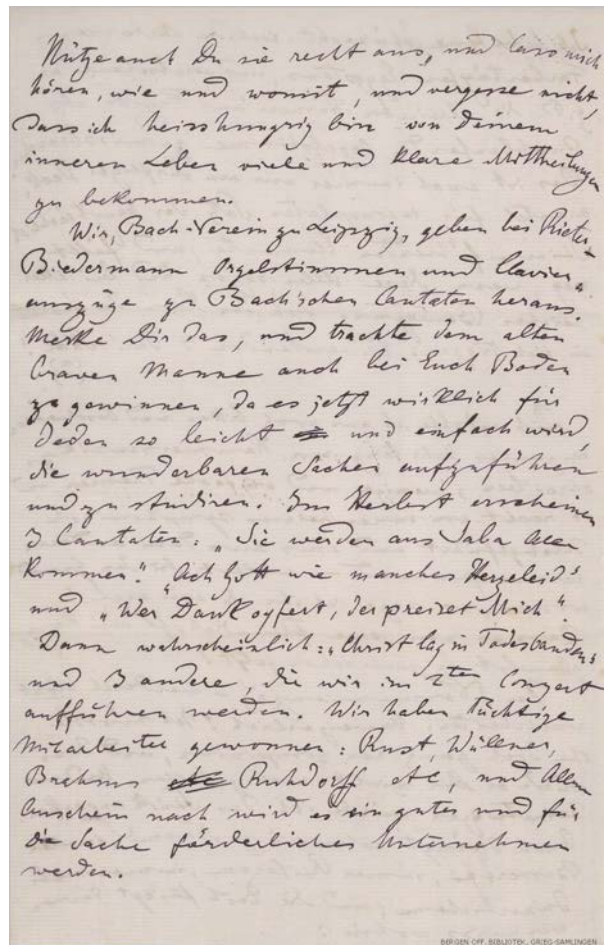 Nütze auch Du sie recht aus, und lass mich
hören, wie und womit, und vergesse nicht,
dass ich heisshungrig bin von Deinem
inneren Leben viele und klare Mittheilungen
zu bekommen.
Wir, Bach-Verein zu Leipzig, geben bei Rieter-
Biedermann Orgelstimmen und Clavier-
auszüge zu Bachischen Cantaten heraus.
Merke Dir das, und trachte dem alten
braven Manne auch bei Euch Boden
zu gewinnen, da es jetzt wirklich für
Jeden so leicht und einfach wird,
die wunderbaren Sachen aufzuführen
und zu studiren. Im Herbst erscheinen
3 Cantaten: „Sie werden aus Saba Alle
kommen". „Ach Gott wie manches Herzeleid"
und „Wer Dank opfert, der preiset Mich".
Dann wahrscheinlich: „Christ lag in Todesbanden"
und 3 andere, die wir im 2ten Conzert
aufführen werden. Wir haben tüchtige
Mitarbeiter gewonnen: Rust, Wüllner,
Brahms etc Ruhdorff etc, und Allem
Anschein nach wird es ein gutes und für
die Sache förderliches Unternehmen
werden.
BERGEN OFF. BIBLIOTEK, GRIEG-SAMLINGEN